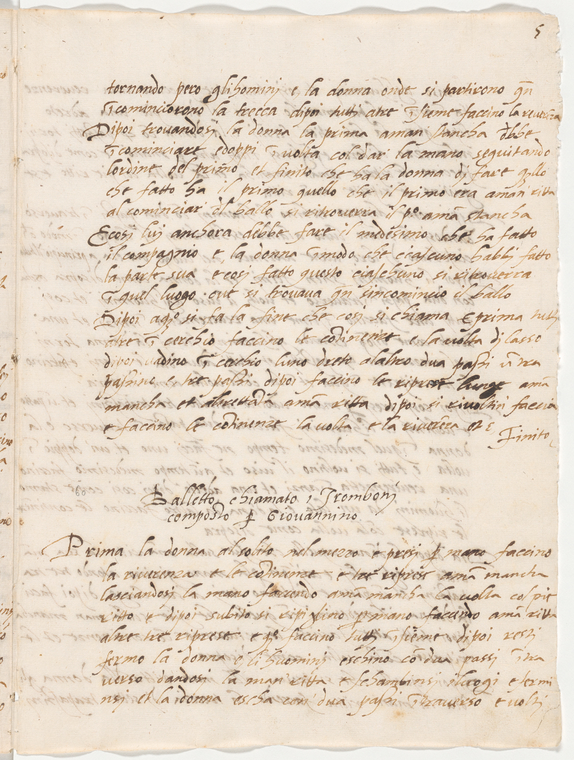 5
tornando pero gl'homini e la donna onde si partirono qn
cominciorono la trecca dipoi tutti atre Ssieme faccino la reuerēza
Dipoi trouandosi la donna la prima aman stancha debbe
cominciare e doppi uolta col dar la mano seguitando
lordine del primo, et finito che ha la donna di fare qllo
che fatto ha il primo quello che il primo era aman ritta
al cominciar del ballo si ritrouerra il po ama stancha
E cosi lui anchora debbe fare il medesimo che ha fatto
il compagnio e la donna modo che ciaschuno habbi fatto
la parte sua e cosi fatto questo ciaschuno si ritrouerra
quel luogo oue si trouaua qn sincomincio il ballo
Dipoi si fa la fine che cosi si chiama e prima tutti
atre cerchio faccino le cōtinenze e la uolta di lasso
dipoi uadino cerchio luno dreto alaltro dua passi
passini e tre passi dipoi faccino le riprese lunge ama
mancha et altrettāta ama ritta dipoi si riuoltin faccia
e faccino le cōtinenze la uolta e la riuerēza
Finito
Balletto chiamato i Tromboni
composto p Giouannino
Prima la donna al solito nel mezzo e presi p mano faccino
la riuerenza et le cōtinenze e tre riprese ama mancha
lasciandosi la mano facendo ama mancha la uolta co piè
ritto e dipoi subito si ripiglino p mano facendo ama ritta
altre tre riprese e faccino tutti Ssieme dipoi resti
fermo la donna e li huomini eschino cō dua passi tra
uerso dandosi la man ritta e schambinsi iluogi e fermi
nsi et la donna escha con dua passi trauerso e uolti